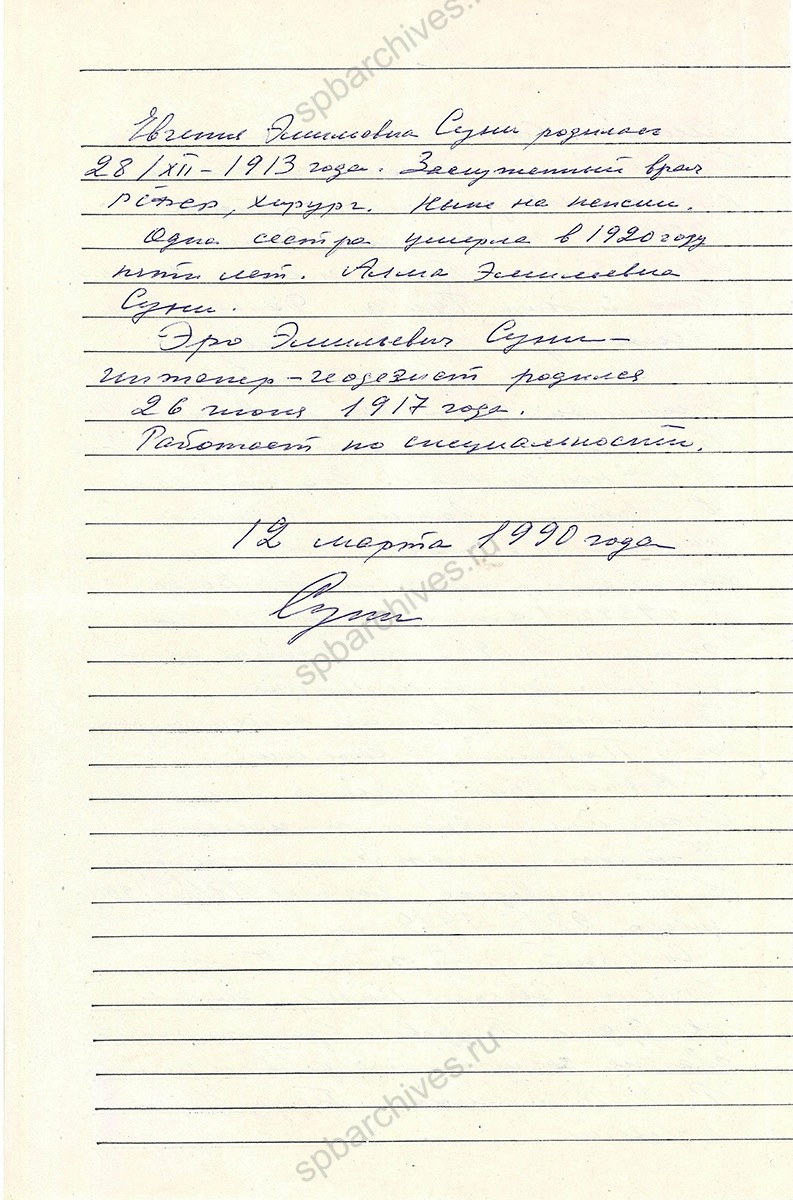 spbarchives.ru
Евгения Эмильевна Суни родилась
28/XII – 1913 года. Заслуженный врач
РСФСР, хирург. Ныне на пенсии.
Одна сестра умерла в 1920 году
пяти лет. Алма Эмильевна
Суни.
Эро Эмильевич Суни –
инженер-геодезист родился
26 июня 1917 года.
Работает по специальности.
12 марта 1990 года
spbarchives.ru
Суни
spbarchives.ru